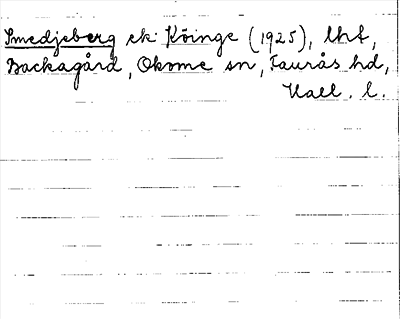 Smedjeberg ek Köinge (1925), lht,
Backagård, Okome sn, Faurås hd,
Hall. l.